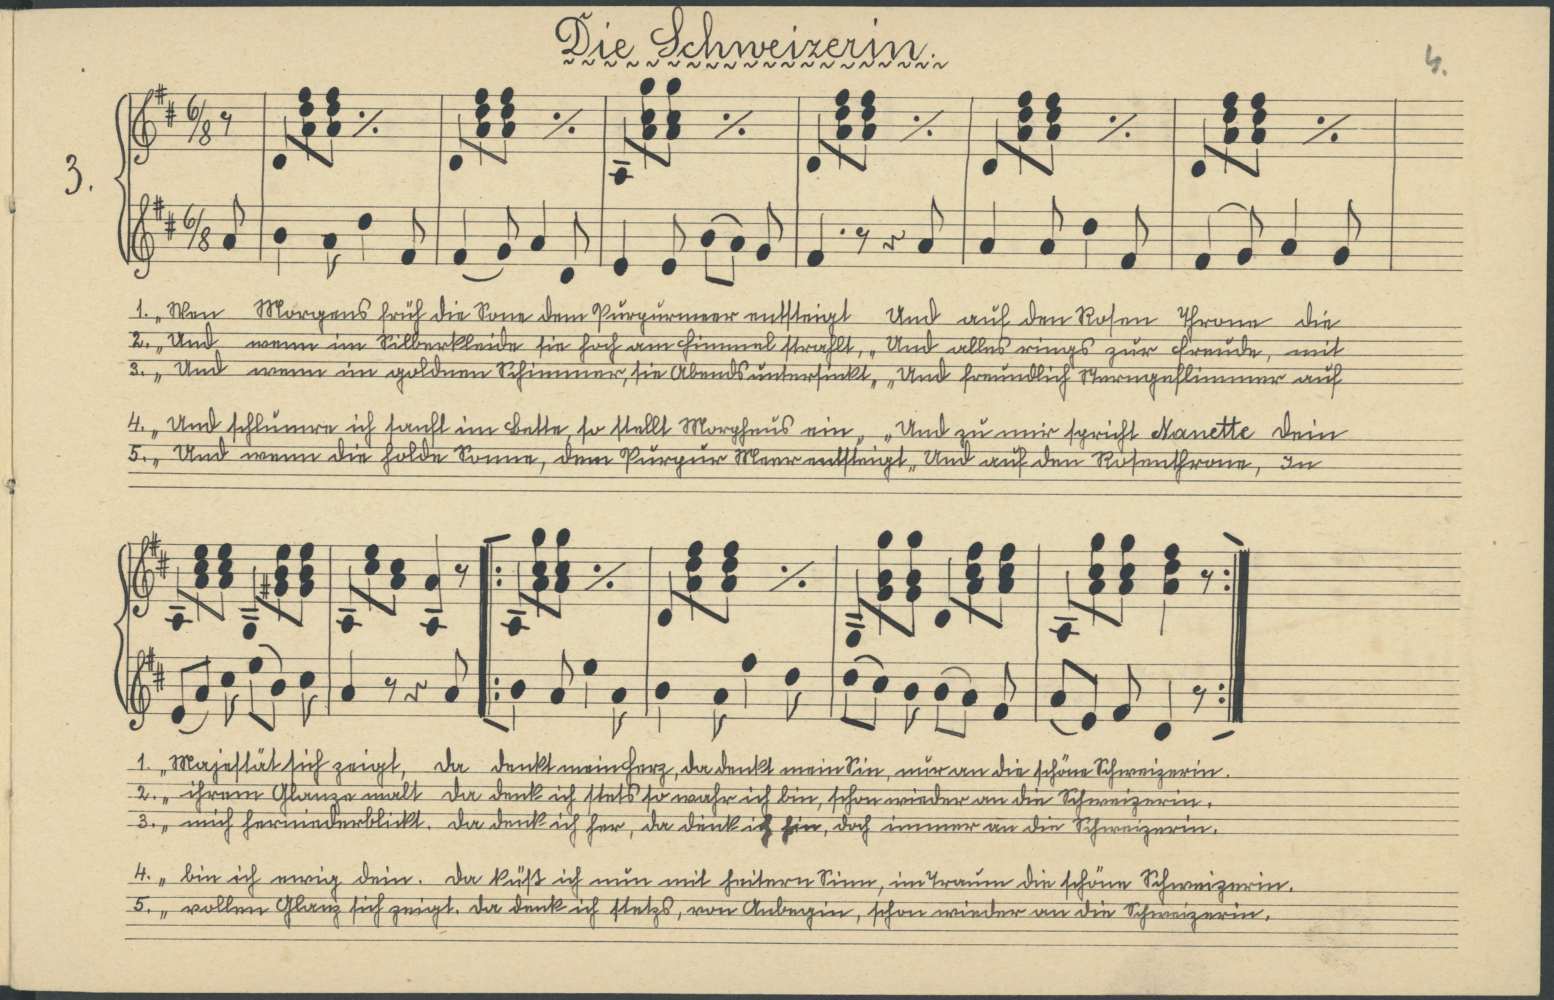 Die Schweizerin.
4.
3.
6/8
6/8
1. „ Wen Morgens früh die Sone dem Purpurmeer entsteigt Und auf den Rosen Throne die
2. „ Und wenn im Silberkleide sie hoch am Himmel strahlt, „ Und alles rings zur Freude, mit
3. „ Und wenn im goldnen Schimmer, sie Abends untersinkt „ „ Und freundlich Sterngeflimmer auf
4. „ Und schlumre ich sanft im Bette, so stellt Morpheus ein „ „ Und zu mir spricht Nanette Dein
5. „ Und wenn die holde Sonne, dem Purpur Meer entsteigt „ Und auf den Rosenthrone, In
1. „ Majestät sich zeigt, Da denkt mein Herz, da denkt mein Sin, nur an die schöne Schweizerin.
2. „ ihrem Glanze malt Da denk ich stets so wahr ich bin, schon wieder an die Schweizerin.
3. „ mich herniederblickt. Da denk ich her, da denk ich hin, doch immer an die Schweizerin.
4. „ bin ich ewig dein. Da küßt ich nun mit heitern Sinn, im Traum die schöne Schweizerin.
5. „ vollen Glanz sich zeigt. Da denk ich stetzs, von Anbegin, schon wieder an die Schweizerin.